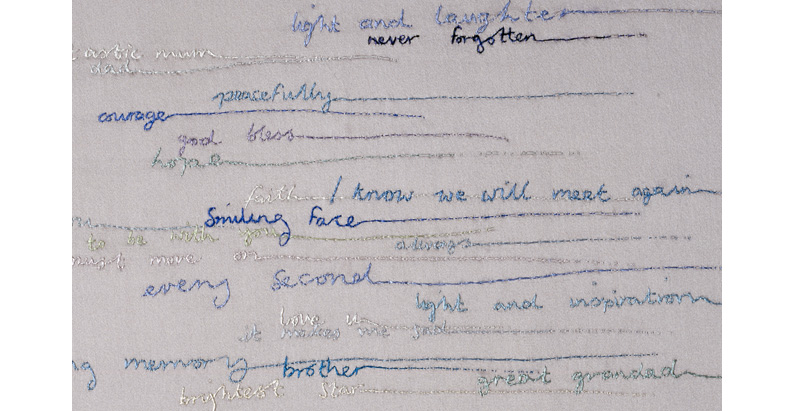 light and laughter
never forgotten
astic mum
dad
peacefully
courage
god bless
hope
faith I know we will meet again
Smiling face
to be with you
always
must move on
every second
light and inspiration
love u
it makes me sad
memory brother
great grandad
brightest star